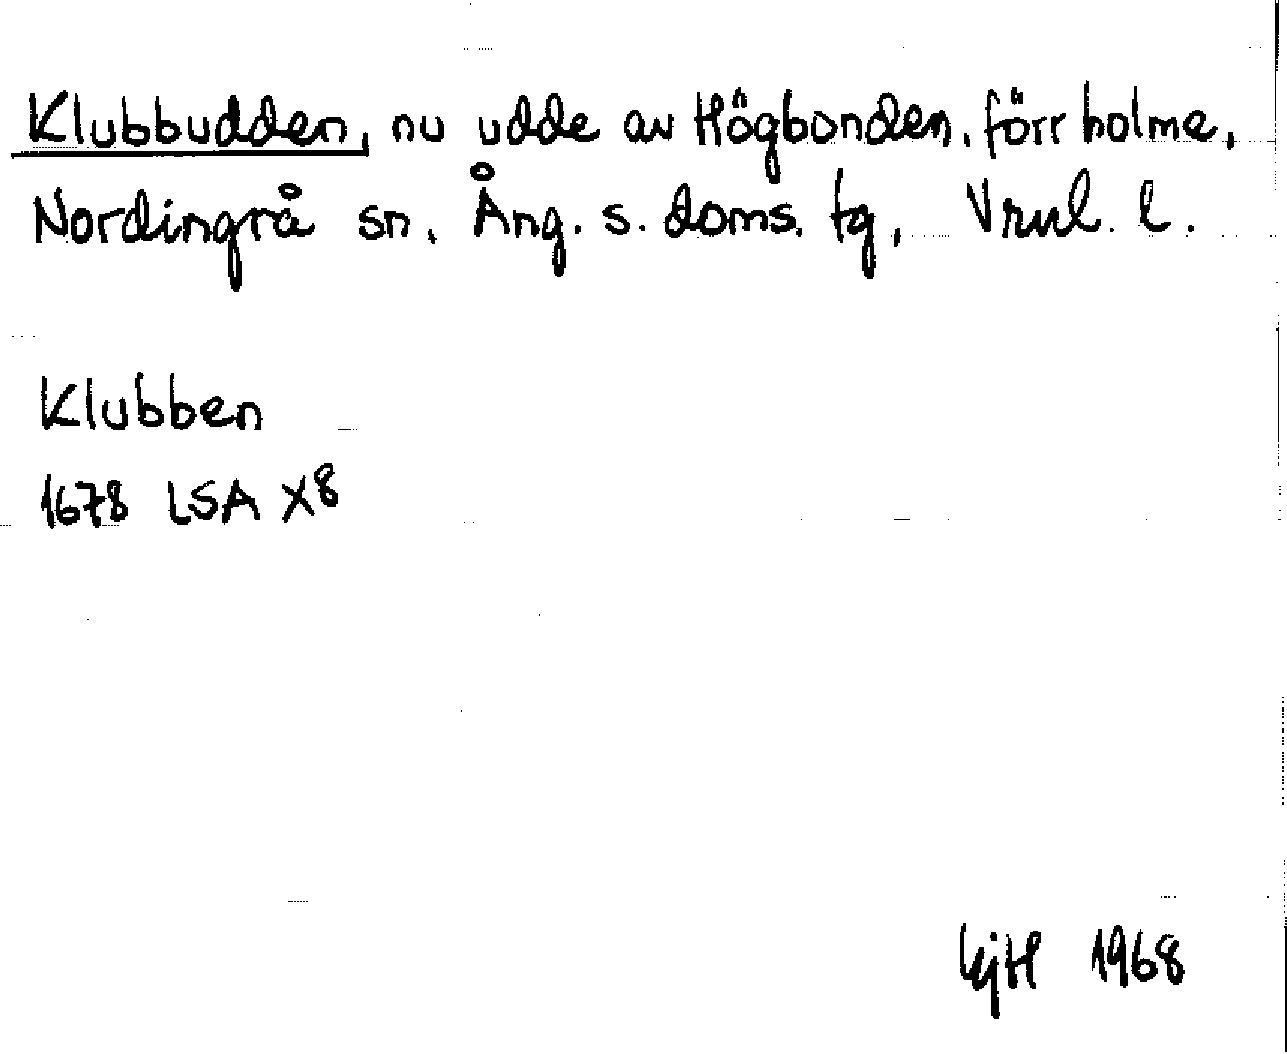 Klubbudden, nu udde av Högbonden, förr holme,
Nordingrå sn, Ång. s. doms. tg, Vrnl. l.
Klubben
1678 LSA X8
1968